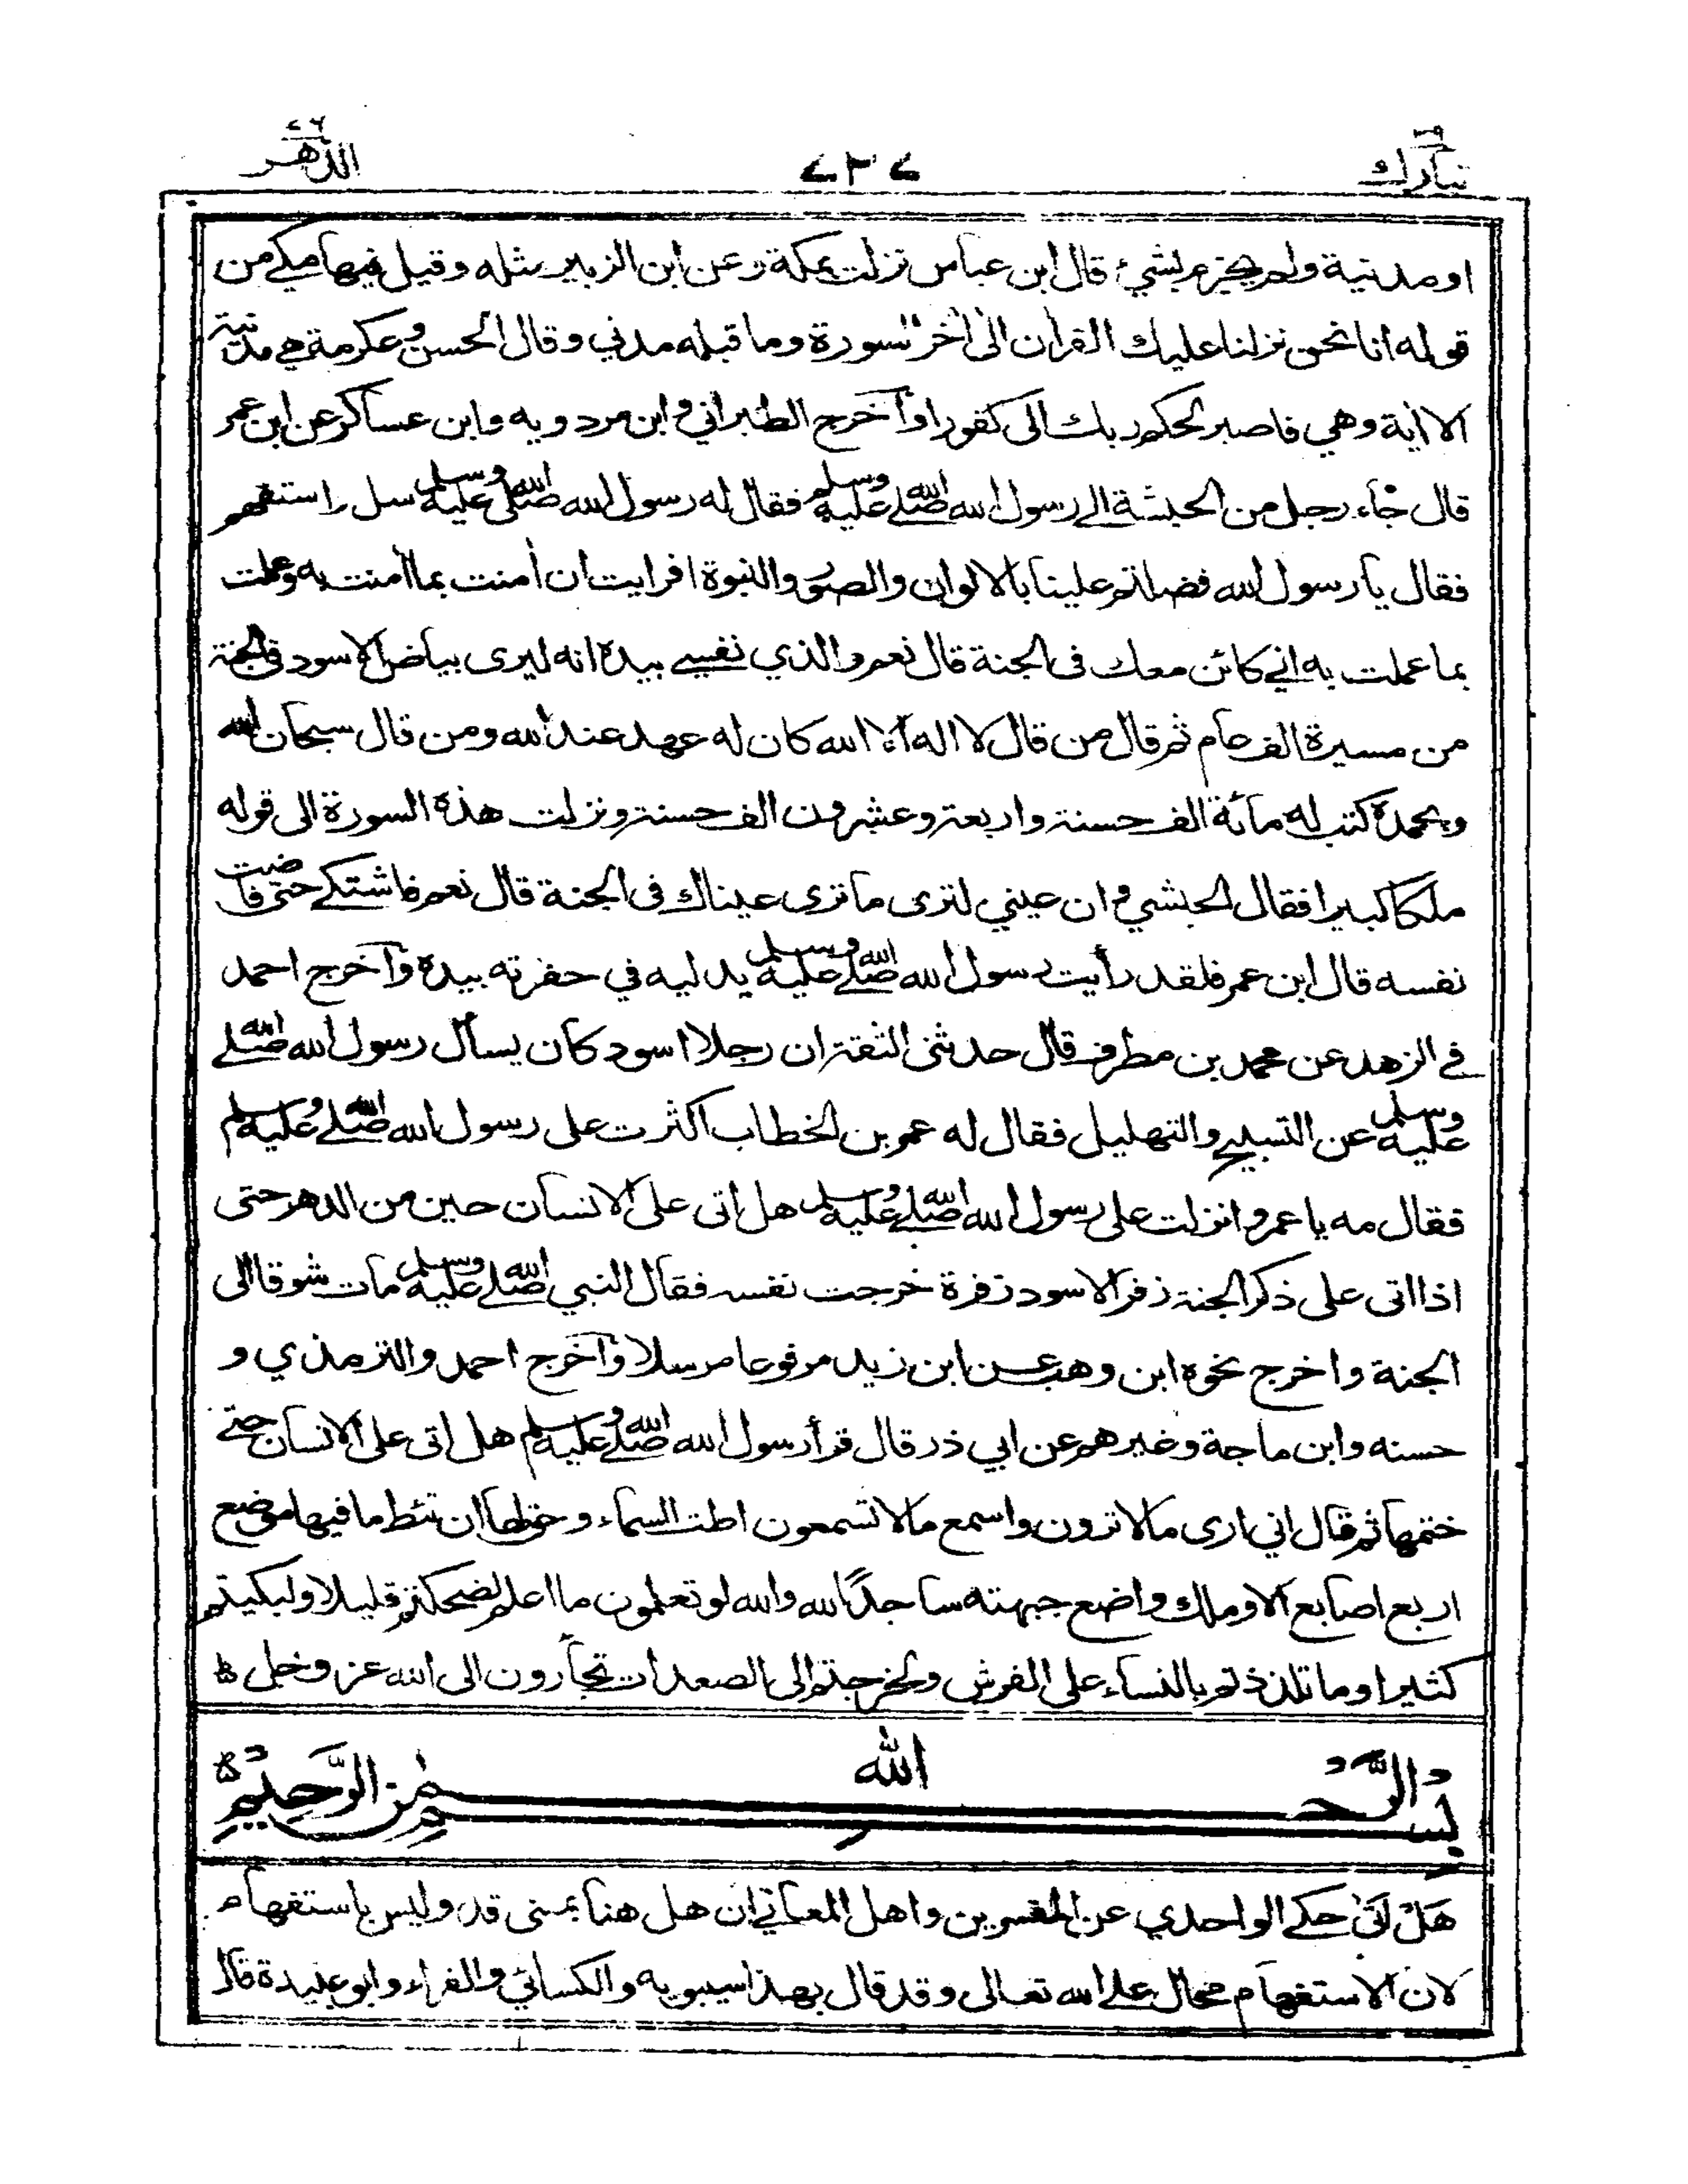 تبارك ٢٩
٤٣٤
الدهر ٧٦
او مدنية ولم يجزم بشيء قال ابن عباس نزلت بمكة وعن ابن الزبير مثله وقيل فيها مكي من
قوله انا نحن نزلنا عليك القرآن الى آخر السورة وما قبله مدني وقال الحسن وعكرمة هي مدنية
الا آية وهي فاصبر لحكم ربك الى كفورا وآخرج الطبراني وابن مردويه وابن عساكر عن ابن عمر
قال جاء رجل من الحبشة الى رسول الله صلى الله عليه وسلم فقال له رسول الله صلى الله عليه وسلم سل واستفهم
فقال يا رسول الله فضلتم علينا بالالوان والصور والنبوة افرايت ان آمنت بما آمنت به وعملت
بما عملت به اني كائن معك في الجنة قال نعم والذي نفسي بيده انه ليرى بياض الاسود في الجنة
من مسيرة الف عام ثم قال من قال لا اله الا الله كان له عهد عند الله ومن قال سبحان الله
وبحمده كتب له مائة الف حسنة واربعة وعشرون الف حسنة ونزلت هذه السورة الى قوله
ملكا كبيرا فقال الحبشي وان عيني لترى ما ترى عيناك في الجنة قال نعم فاشتكى حتى فاضت
نفسه قال ابن عمر فلقد رأيت رسول الله صلى الله عليه وسلم يدليه في حفرته بيده وآخرج احمد
في الزهد عن محمد بن مطرف قال حدثني الثقة ان رجلا اسود كان يسأل رسول الله صلى الله
عليه وسلم عن التسبيح والتهليل فقال له عمر بن الخطاب اكثرت على رسول الله صلى الله عليه وسلم
فقال مه يا عمر وانزلت على رسول الله صلى الله عليه وسلم هل اتى على الانسان حين من الدهر حتى
اذا اتى على ذكر الجنة زفر الاسود زفرة خرجت نفسه فقال النبي صلى الله عليه وسلم مات شوقا الى
الجنة واخرج نحوه ابن وهب عن ابن زيد مرفوعا مرسلا وآخرج احمد والترمذي و
حسنه وابن ماجة وغيرهم عن ابي ذر قال قرأ رسول الله صلى الله عليه وسلم هل اتى على الانسان حتى
ختمها ثم قال اني ارى ما لا ترون واسمع ما لا تسمعون اطت السماء وحق لها ان تئط ما فيها موضع
اربع اصابع الا وملك واضع جبهته ساجدًا لله والله لو تعلمون ما اعلم لضحكتم قليلا ولبكيتم
كثيرا وما تلذذتم بالنساء على الفرش ولخرجتم الى الصعدات تجأرون الى الله عز وجل ط
بسم الله الرحمن الرحيم
هَلْ اَتىٰ حكى الواحدي عن المفسرين واهل المعاني ان هل هنا بمعنى قد وليس باستفهام
لان الاستفهام محال على الله تعالى وقد قال بهذا سيبويه والكسائي والفراء وابو عبيدة قال